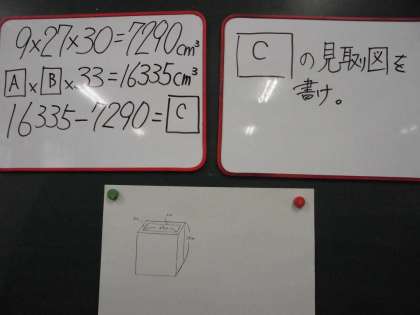 9×27×30=7290cm³
A×B×33=16335cm³
16335-7290=C
Cの見取図を
書け。